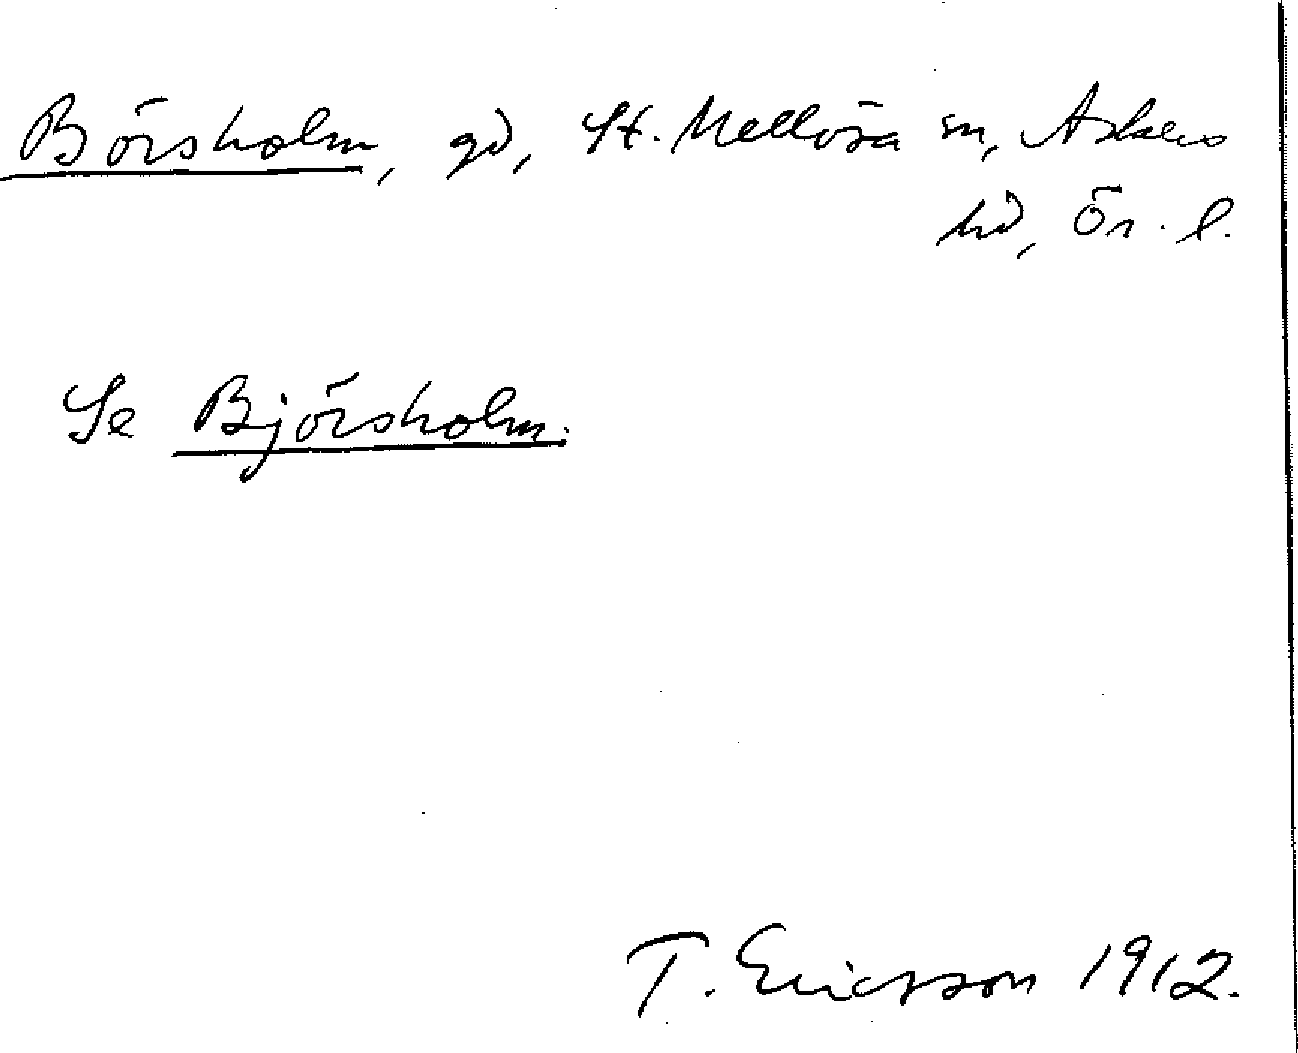 Börsholm, gd, St. Mellösa sn, Askers
hd, Ör. l.
Se Björsholm.
T. Ericsson 1912.